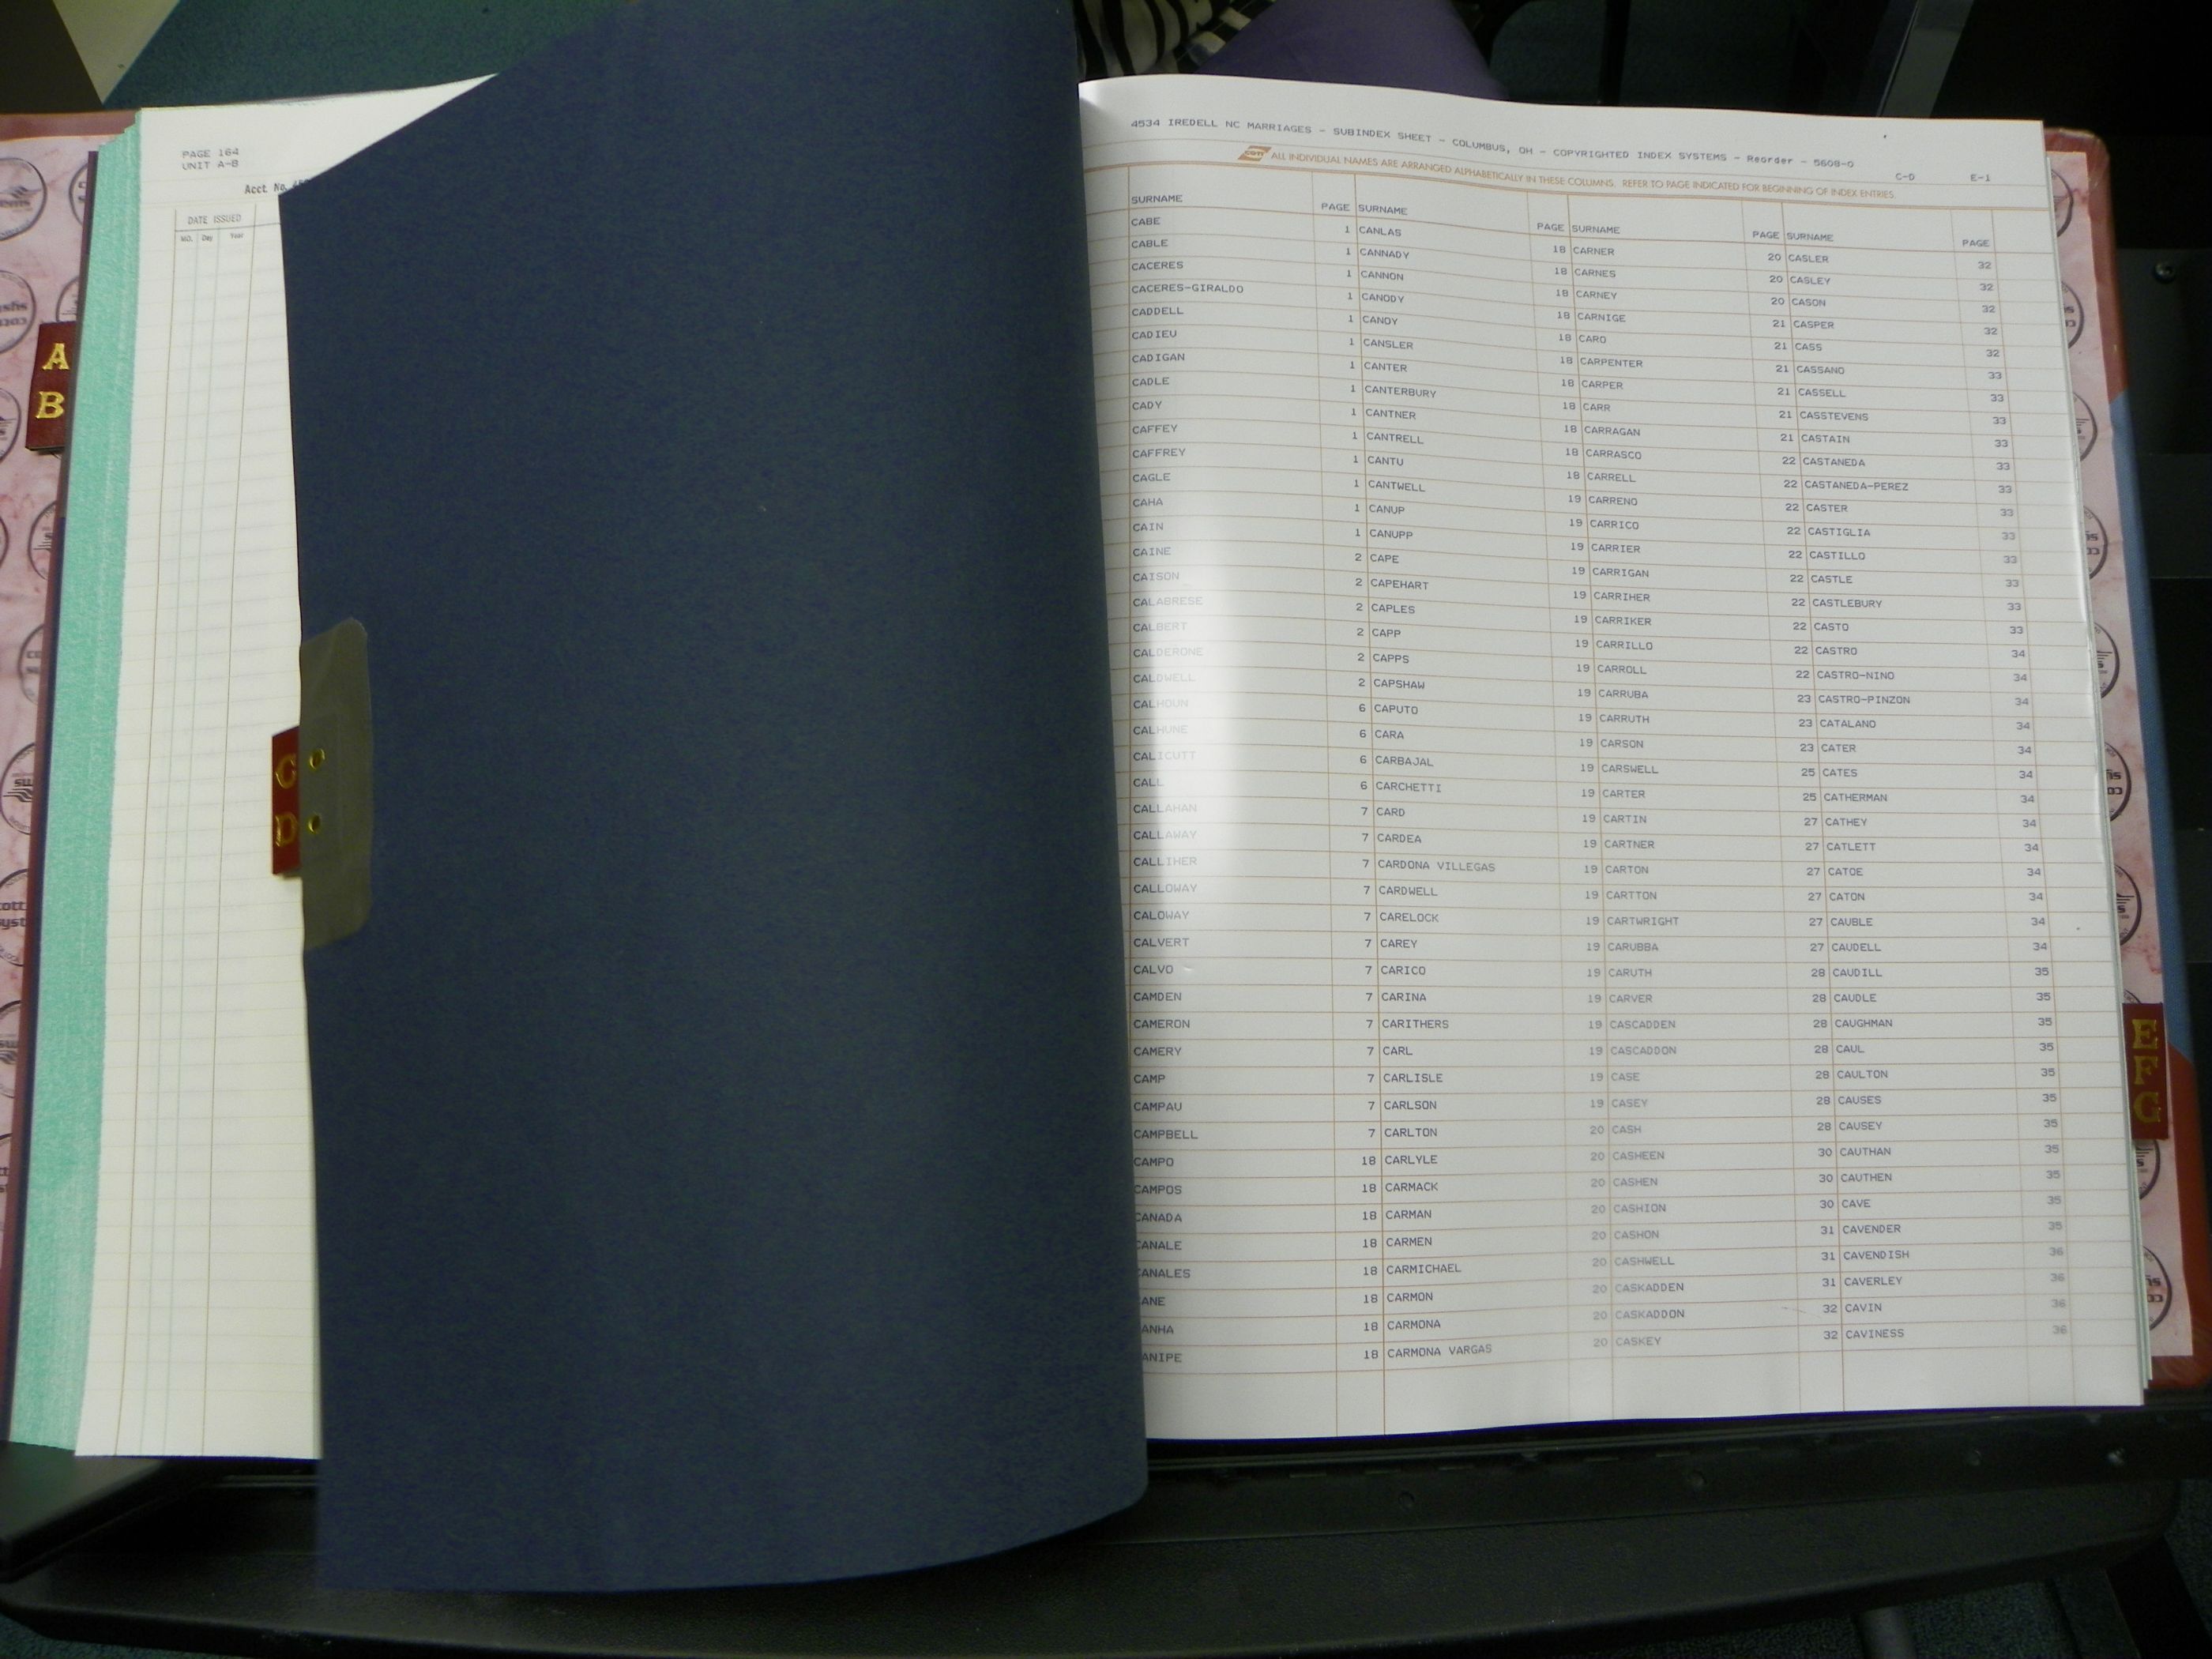 PAGE 164
UNIT A-B
Acct. No.
DATE ISSUED
MO. Day Year
A
B
C
D
4534 IREDELL NC MARRIAGES - SUBINDEX SHEET - COLUMBUS, OH - COPYRIGHTED INDEX SYSTEMS - Reorder - 5608-D
C-D E-1
cott ALL INDIVIDUAL NAMES ARE ARRANGED ALPHABETICALLY IN THESE COLUMNS. REFER TO PAGE INDICATED FOR BEGINNING OF INDEX ENTRIES.
SURNAME PAGE SURNAME PAGE SURNAME PAGE SURNAME PAGE
CABE 1 CANLAS 18 CARNER 20 CASLER 32
CABLE 1 CANNADY 18 CARNES 20 CASLEY 32
CACERES 1 CANNON 18 CARNEY 20 CASON 32
CACERES-GIRALDO 1 CANODY 18 CARNIGE 21 CASPER 32
CADDELL 1 CANOY 18 CARO 21 CASS 32
CADIEU 1 CANSLER 18 CARPENTER 21 CASSANO 33
CADIGAN 1 CANTER 18 CARPER 21 CASSELL 33
CADLE 1 CANTERBURY 18 CARR 21 CASSTEVENS 33
CADY 1 CANTNER 18 CARRAGAN 21 CASTAIN 33
CAFFEY 1 CANTRELL 18 CARRASCO 22 CASTANEDA 33
CAFFREY 1 CANTU 18 CARRELL 22 CASTANEDA-PEREZ 33
CAGLE 1 CANTWELL 19 CARRENO 22 CASTER 33
CAHA 1 CANUP 19 CARRICO 22 CASTIGLIA 33
CAIN 1 CANUPP 19 CARRIER 22 CASTILLO 33
CAINE 2 CAPE 19 CARRIGAN 22 CASTLE 33
CAISON 2 CAPEHART 19 CARRIHER 22 CASTLEBURY 33
CALABRESE 2 CAPLES 19 CARRIKER 22 CASTO 33
CALBERT 2 CAPP 19 CARRILLO 22 CASTRO 34
CALDERONE 2 CAPPS 19 CARROLL 22 CASTRO-NINO 34
CALDWELL 2 CAPSHAW 19 CARRUBA 23 CASTRO-PINZON 34
CALHOUN 6 CAPUTO 19 CARRUTH 23 CATALANO 34
CALHUNE 6 CARA 19 CARSON 23 CATER 34
CALICUTT 6 CARBAJAL 19 CARSWELL 25 CATES 34
CALL 6 CARCHETTI 19 CARTER 25 CATHERMAN 34
CALLAHAN 7 CARD 19 CARTIN 27 CATHEY 34
CALLAWAY 7 CARDEA 19 CARTNER 27 CATLETT 34
CALLIHER 7 CARDONA VILLEGAS 19 CARTON 27 CATOE 34
CALLOWAY 7 CARDWELL 19 CARTTON 27 CATON 34
CALOWAY 7 CARELOCK 19 CARTWRIGHT 27 CAUBLE 34
CALVERT 7 CAREY 19 CARUBBA 27 CAUDELL 34
CALVO 7 CARICO 19 CARUTH 28 CAUDILL 35
CAMDEN 7 CARINA 19 CARVER 28 CAUDLE 35
CAMERON 7 CARITHERS 19 CASCADDEN 28 CAUGHMAN 35
CAMERY 7 CARL 19 CASCADDON 28 CAUL 35
CAMP 7 CARLISLE 19 CASE 28 CAULTON 35
CAMPAU 7 CARLSON 19 CASEY 28 CAUSES 35
CAMPBELL 7 CARLTON 20 CASH 28 CAUSEY 35
CAMPO 18 CARLYLE 20 CASHEEN 30 CAUTHAN 35
CAMPOS 18 CARMACK 20 CASHEN 30 CAUTHEN 35
CANADA 18 CARMAN 20 CASHION 30 CAVE 35
CANALE 18 CARMEN 20 CASHON 31 CAVENDER 35
CANALES 18 CARMICHAEL 20 CASHWELL 31 CAVENDISH 36
ANE 18 CARMON 20 CASKADDEN 31 CAVERLEY 36
ANHA 18 CARMONA 20 CASKADDON 32 CAVIN 36
ANIPE 18 CARMONA VARGAS 20 CASKEY 32 CAVINESS 36
E
F
G